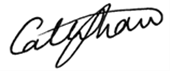 Cathy Shaw